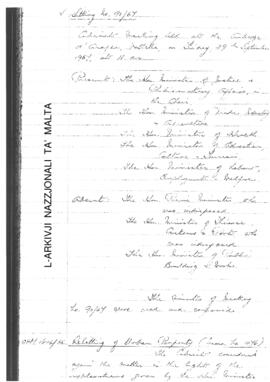 Sitting No. 90/67
Cabinet meeting held at the Auberge
d'Aragon, Valletta, on
1967, at 11. a.m.
Present: The Hon. Minister of Justice &
Parliamentary Affairs, in
the Chair
The Hon. Minister of Trade, Industry
& Agriculture
The Hon. Minister of Health
The Hon. Minister of Education,
Culture & Tourism
The Hon. Minister of Labour,
Employment & Welfare
Absent: The Hon. Prime Minister who
was indisposed
The Hon. Minister of Finance,
Customs & Ports who
was indisposed
The Hon. Minister of Public
Building & Works
The Minutes of Meeting
No. 90/67 were read and confirmed
Reletting of Urban Property
The Cabinet considered
again the matter in the light of the
given by the Hon. Minister
L-ARKIVJI NAZZJONALI TA' MALTA